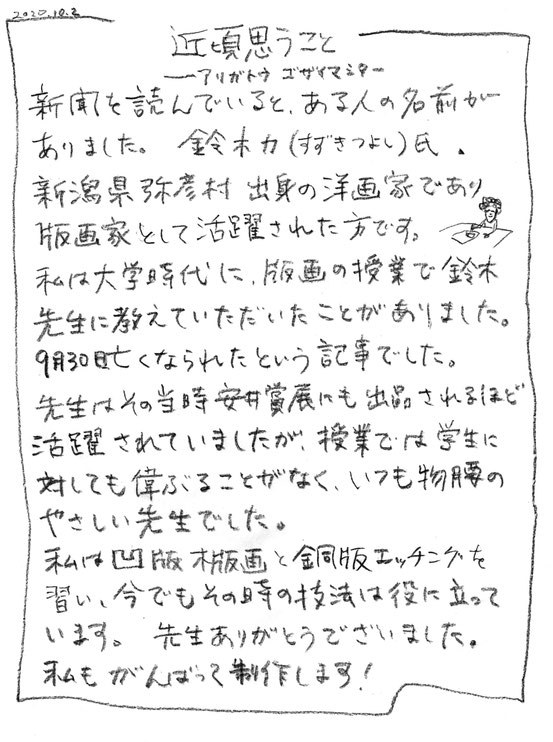 2020.10.2
近頃思うこと
―アリガトウ ゴザイマシター
新聞を読んでいると、ある人の名前が
ありました。 鈴木力(すずきつよし)氏.
新潟県弥彦村 出身の洋画家であり
版画家として活躍された方です。
私は大学時代に、版画の授業で鈴木
先生に教えていただいたことがありました。
9月30日亡くなられたという記事でした。
先生はその当時安井賞展にも出品されるほど
活躍されていましたが、授業では学生に
対しても偉ぶることがなく、いつも物腰の
やさしい先生でした。
私は凹版木版画と銅版エッチングを
習い、今でもその時の技法は役に立って
います。 先生ありがとうございました。
私もがんばって制作します!